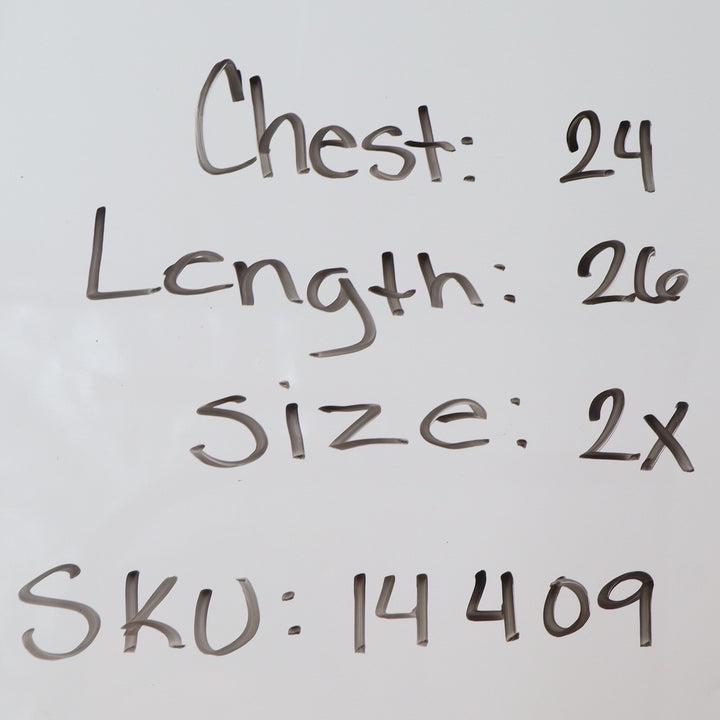 Chest: 24
Length: 26
Size: 2X
SKU: 14409